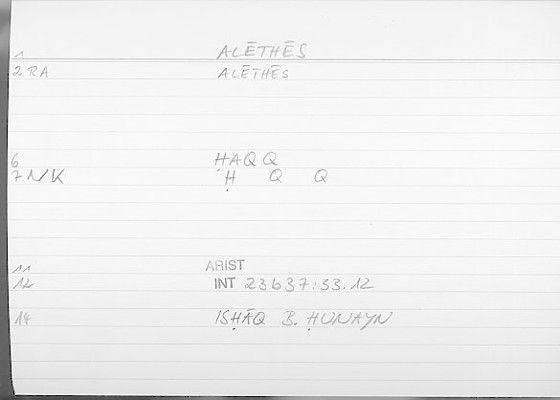 1 ALĒTHĒS
2 RA ALĒTHĒS
6 ḤAQQ
7 N/K Ḥ Q Q
11 ARIST
12 INT 23b37:33.12
14 ISḤĀQ B. ḤUNAYN